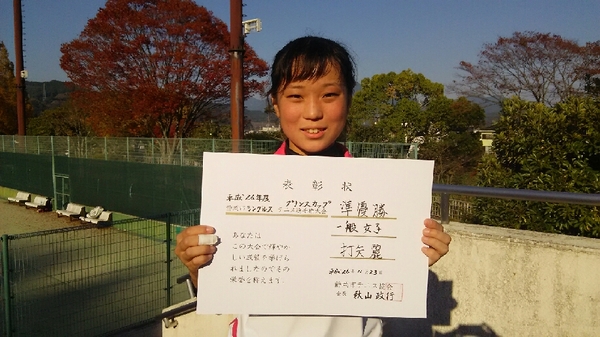 表彰状
平成26年度
プリンスカップ
シングルス
テニス選手権大会
準優勝
一般女子
打矢麗
あなたは
この大会で輝やか
しい成績を挙げら
れましたのでその
栄誉を称えます
平成26年11月23日
テニス協会
会長 秋山政行